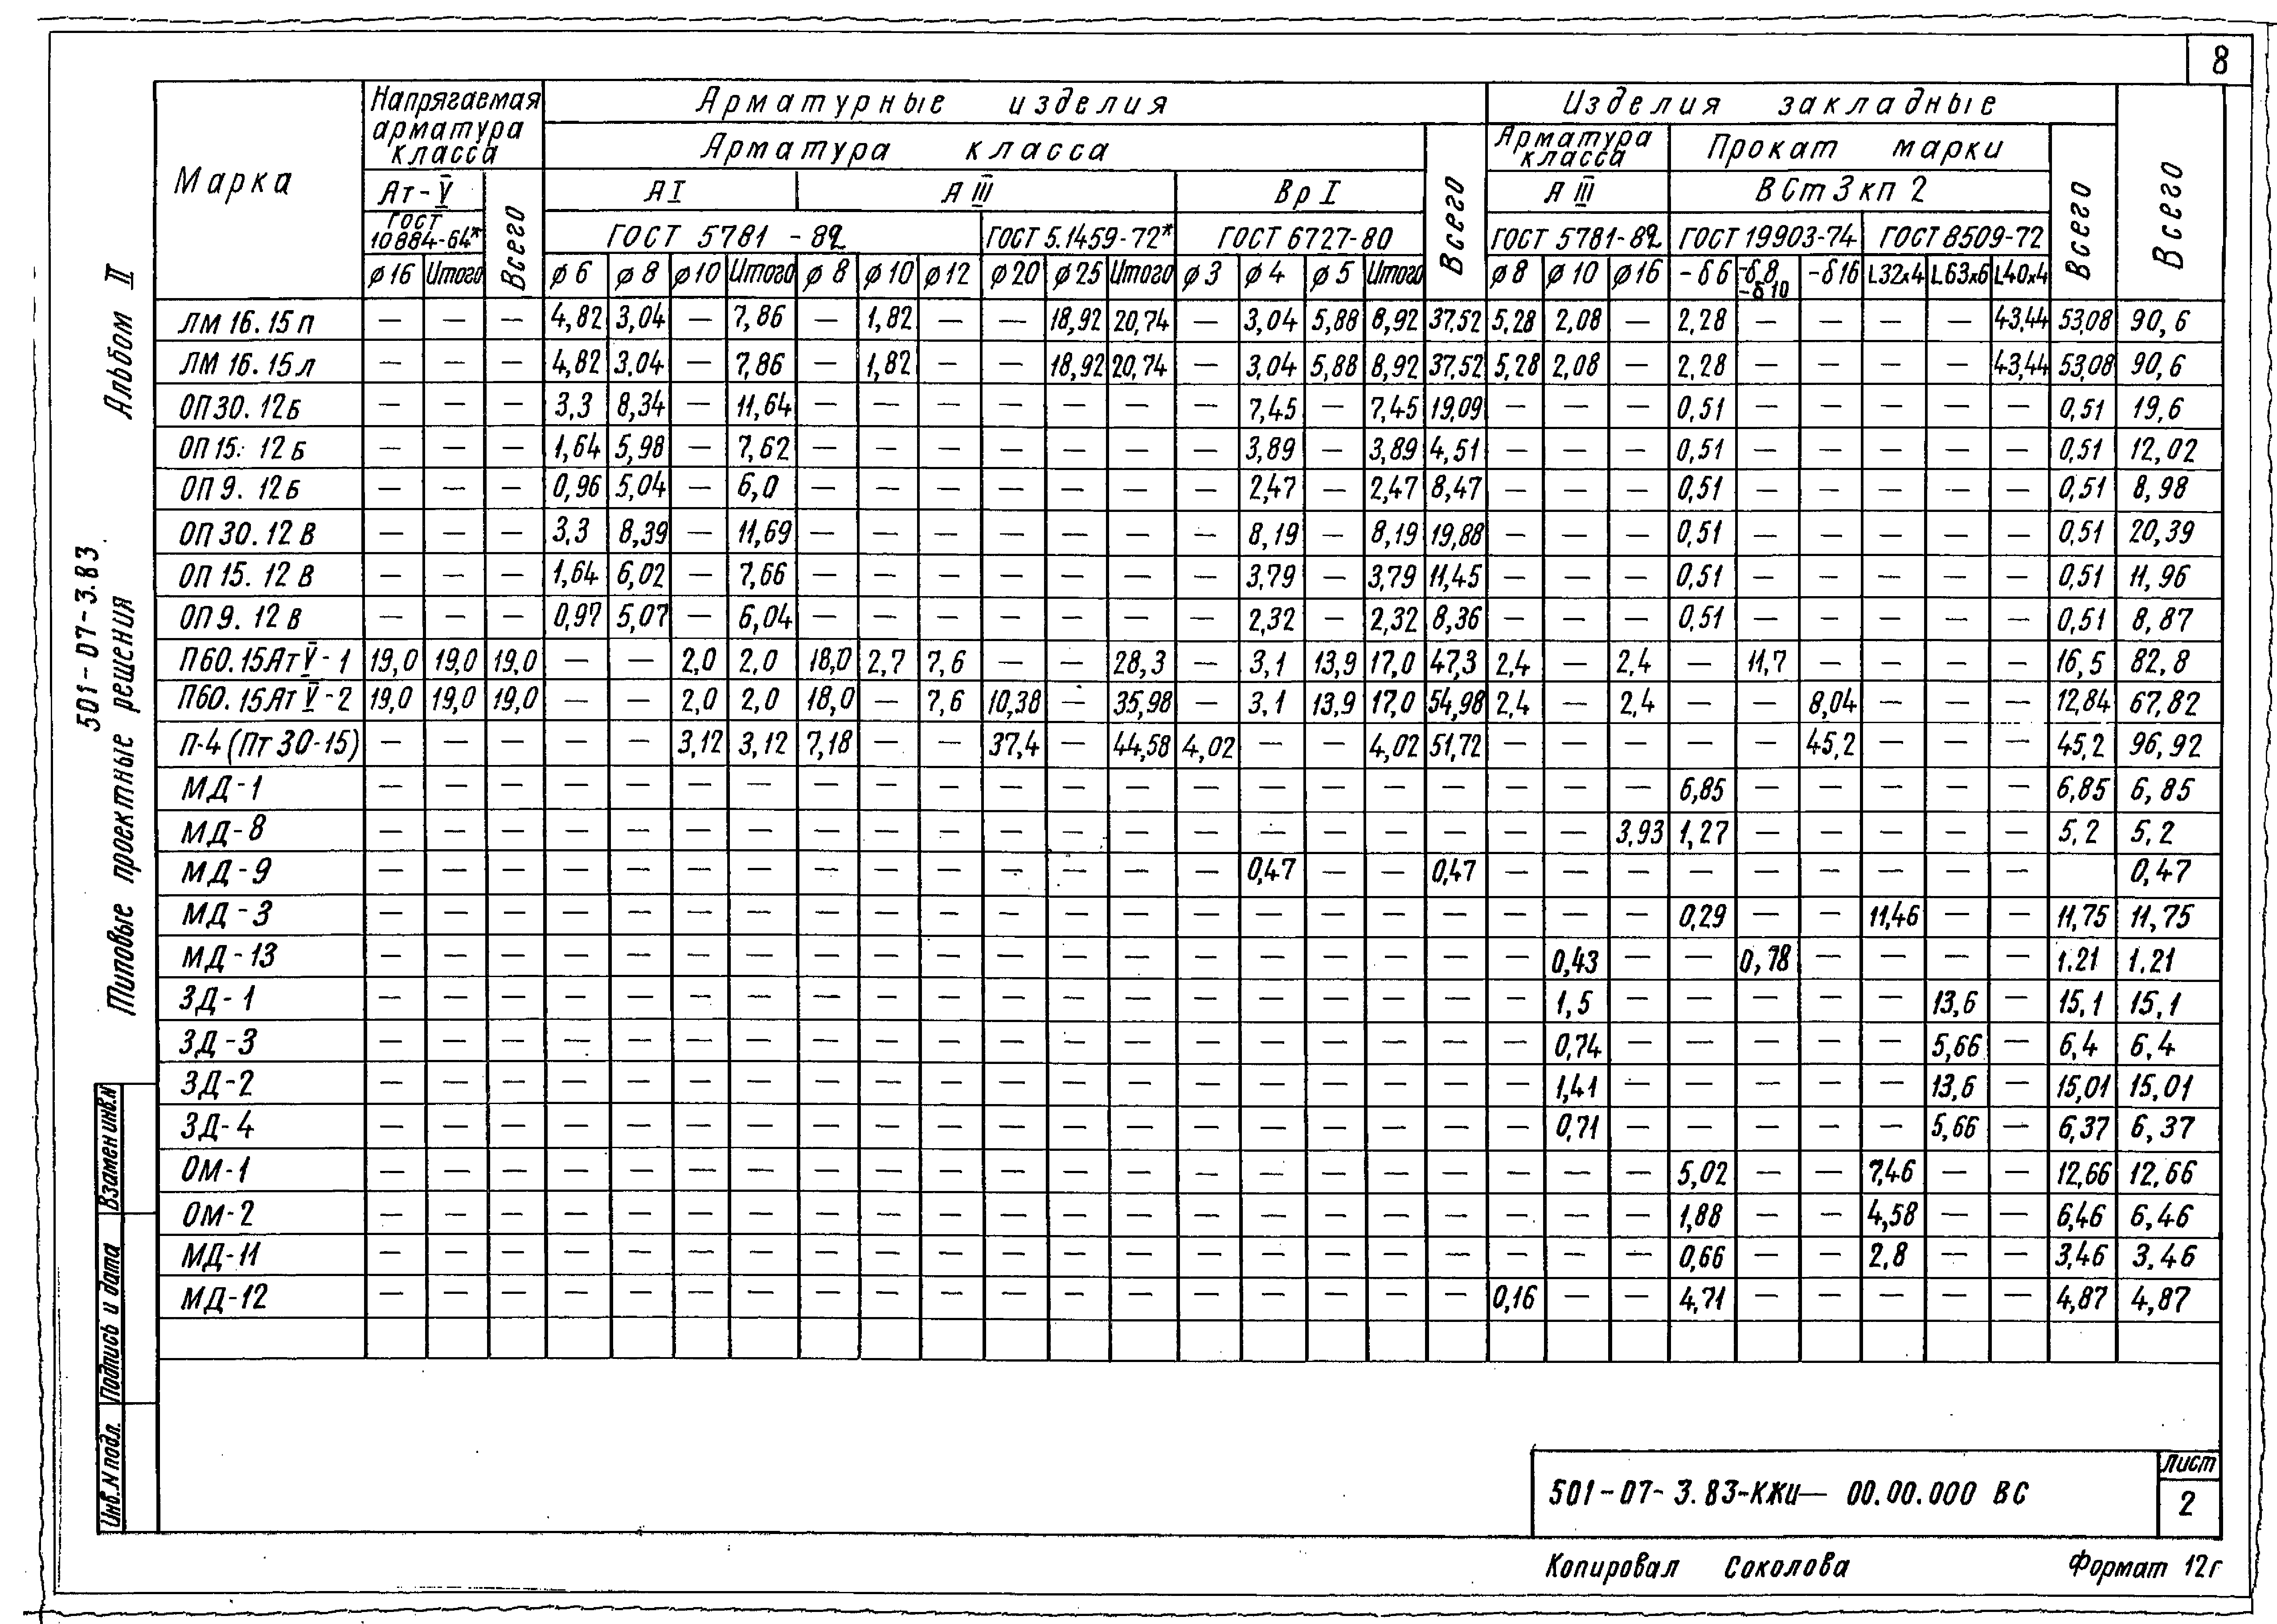 8
Марка
Напрягаемая арматура класса
Арматурные изделия
Изделия закладные
Всего
Арматура класса
Всего
Арматура класса
Прокат марки
Всего
Ат-V
Всего
А I
А III
Вр I
А III
ВСт 3 кп 2
ГОСТ 10884-64*
ГОСТ 5781-82
ГОСТ 5.1459-72*
ГОСТ 6727-80
ГОСТ 5781-82
ГОСТ 19903-74
ГОСТ 8509-72
ø16 Итого ø6 ø8 ø10 Итого ø8 ø10 ø12 ø20 ø25 Итого ø3 ø4 ø5 Итого ø8 ø10 ø16 -δ6 -δ8 -δ10 -δ16 L32x4 L63x6 L40x4
ЛМ 16.15 п — — — 4,82 3,04 — 7,86 — 1,82 — — 18,92 20,74 — 3,04 5,88 8,92 37,52 5,28 2,08 — 2,28 — — — — 43,44 53,08 90,6
ЛМ 16.15 л — — — 4,82 3,04 — 7,86 — 1,82 — — 18,92 20,74 — 3,04 5,88 8,92 37,52 5,28 2,08 — 2,28 — — — — 43,44 53,08 90,6
ОП 30. 12 Б — — — 3,3 8,34 — 11,64 — — — — — — — 7,45 — 7,45 19,09 — — — 0,51 — — — — — 0,51 19,6
ОП 15. 12 Б — — — 1,64 5,98 — 7,62 — — — — — — — 3,89 — 3,89 4,51 — — — 0,51 — — — — — 0,51 12,02
ОП 9. 12 Б — — — 0,96 5,04 — 6,0 — — — — — — — 2,47 — 2,47 8,47 — — — 0,51 — — — — — 0,51 8,98
ОП 30. 12 В — — — 3,3 8,39 — 11,69 — — — — — — — 8,19 — 8,19 19,88 — — — 0,51 — — — — — 0,51 20,39
ОП 15. 12 В — — — 1,64 6,02 — 7,66 — — — — — — — 3,79 — 3,79 11,45 — — — 0,51 — — — — — 0,51 11,96
ОП 9. 12 В — — — 0,97 5,07 — 6,04 — — — — — — — 2,32 — 2,32 8,36 — — — 0,51 — — — — — 0,51 8,87
П60.15Ат V-1 19,0 19,0 19,0 — — 2,0 2,0 18,0 2,7 7,6 — — 28,3 — 3,1 13,9 17,0 47,3 2,4 — 2,4 — 11,7 — — — — 16,5 82,8
П60.15Ат V-2 19,0 19,0 19,0 — — 2,0 2,0 18,0 — 7,6 10,38 — 35,98 — 3,1 13,9 17,0 54,98 2,4 — 2,4 — — 8,04 — — — 12,84 67,82
П-4 (Пт 30-15) — — — — — 3,12 3,12 7,18 — — 37,4 — 44,58 4,02 — — 4,02 51,72 — — — — — 45,2 — — — 45,2 96,92
МД-1 — — — — — — — — — — — — — — — — — — — — — 6,85 — — — — — 6,85 6,85
МД-8 — — — — — — — — — — — — — — — — — — — — 3,93 1,27 — — — — — 5,2 5,2
МД-9 — — — — — — — — — — — — — — 0,47 — — 0,47 — — — — — — — — — 0,47
МД-3 — — — — — — — — — — — — — — — — — — — — — 0,29 — — 11,46 — — 11,75 11,75
МД-13 — — — — — — — — — — — — — — — — — — — 0,43 — — 0,78 — — — — 1.21 1.21
ЗД-1 — — — — — — — — — — — — — — — — — — — 1,5 — — — — — 13,6 — 15,1 15,1
ЗД-3 — — — — — — — — — — — — — — — — — — — 0,74 — — — — — 5,66 — 6,4 6,4
ЗД-2 — — — — — — — — — — — — — — — — — — — 1,41 — — — — — 13,6 — 15,01 15,01
ЗД-4 — — — — — — — — — — — — — — — — — — — 0,71 — — — — — 5,66 — 6,37 6,37
ОМ-1 — — — — — — — — — — — — — — — — — — — — — 5,02 — — 7,46 — — 12,66 12,66
ОМ-2 — — — — — — — — — — — — — — — — — — — — — 1,88 — — 4,58 — — 6,46 6,46
МД-11 — — — — — — — — — — — — — — — — — — — — — 0,66 — — 2,8 — — 3,46 3.46
МД-12 — — — — — — — — — — — — — — — — — — 0,16 — — 4,71 — — — — — 4,87 4,87
501-07-3.83
Типовые проектные решения Альбом III
Взамен инв.N
Подпись и дата
Инв.N подл.
501-07-3.83-КЖИ— 00.00.000 ВС
Лист
2
Копировал Соколова
Формат 12г